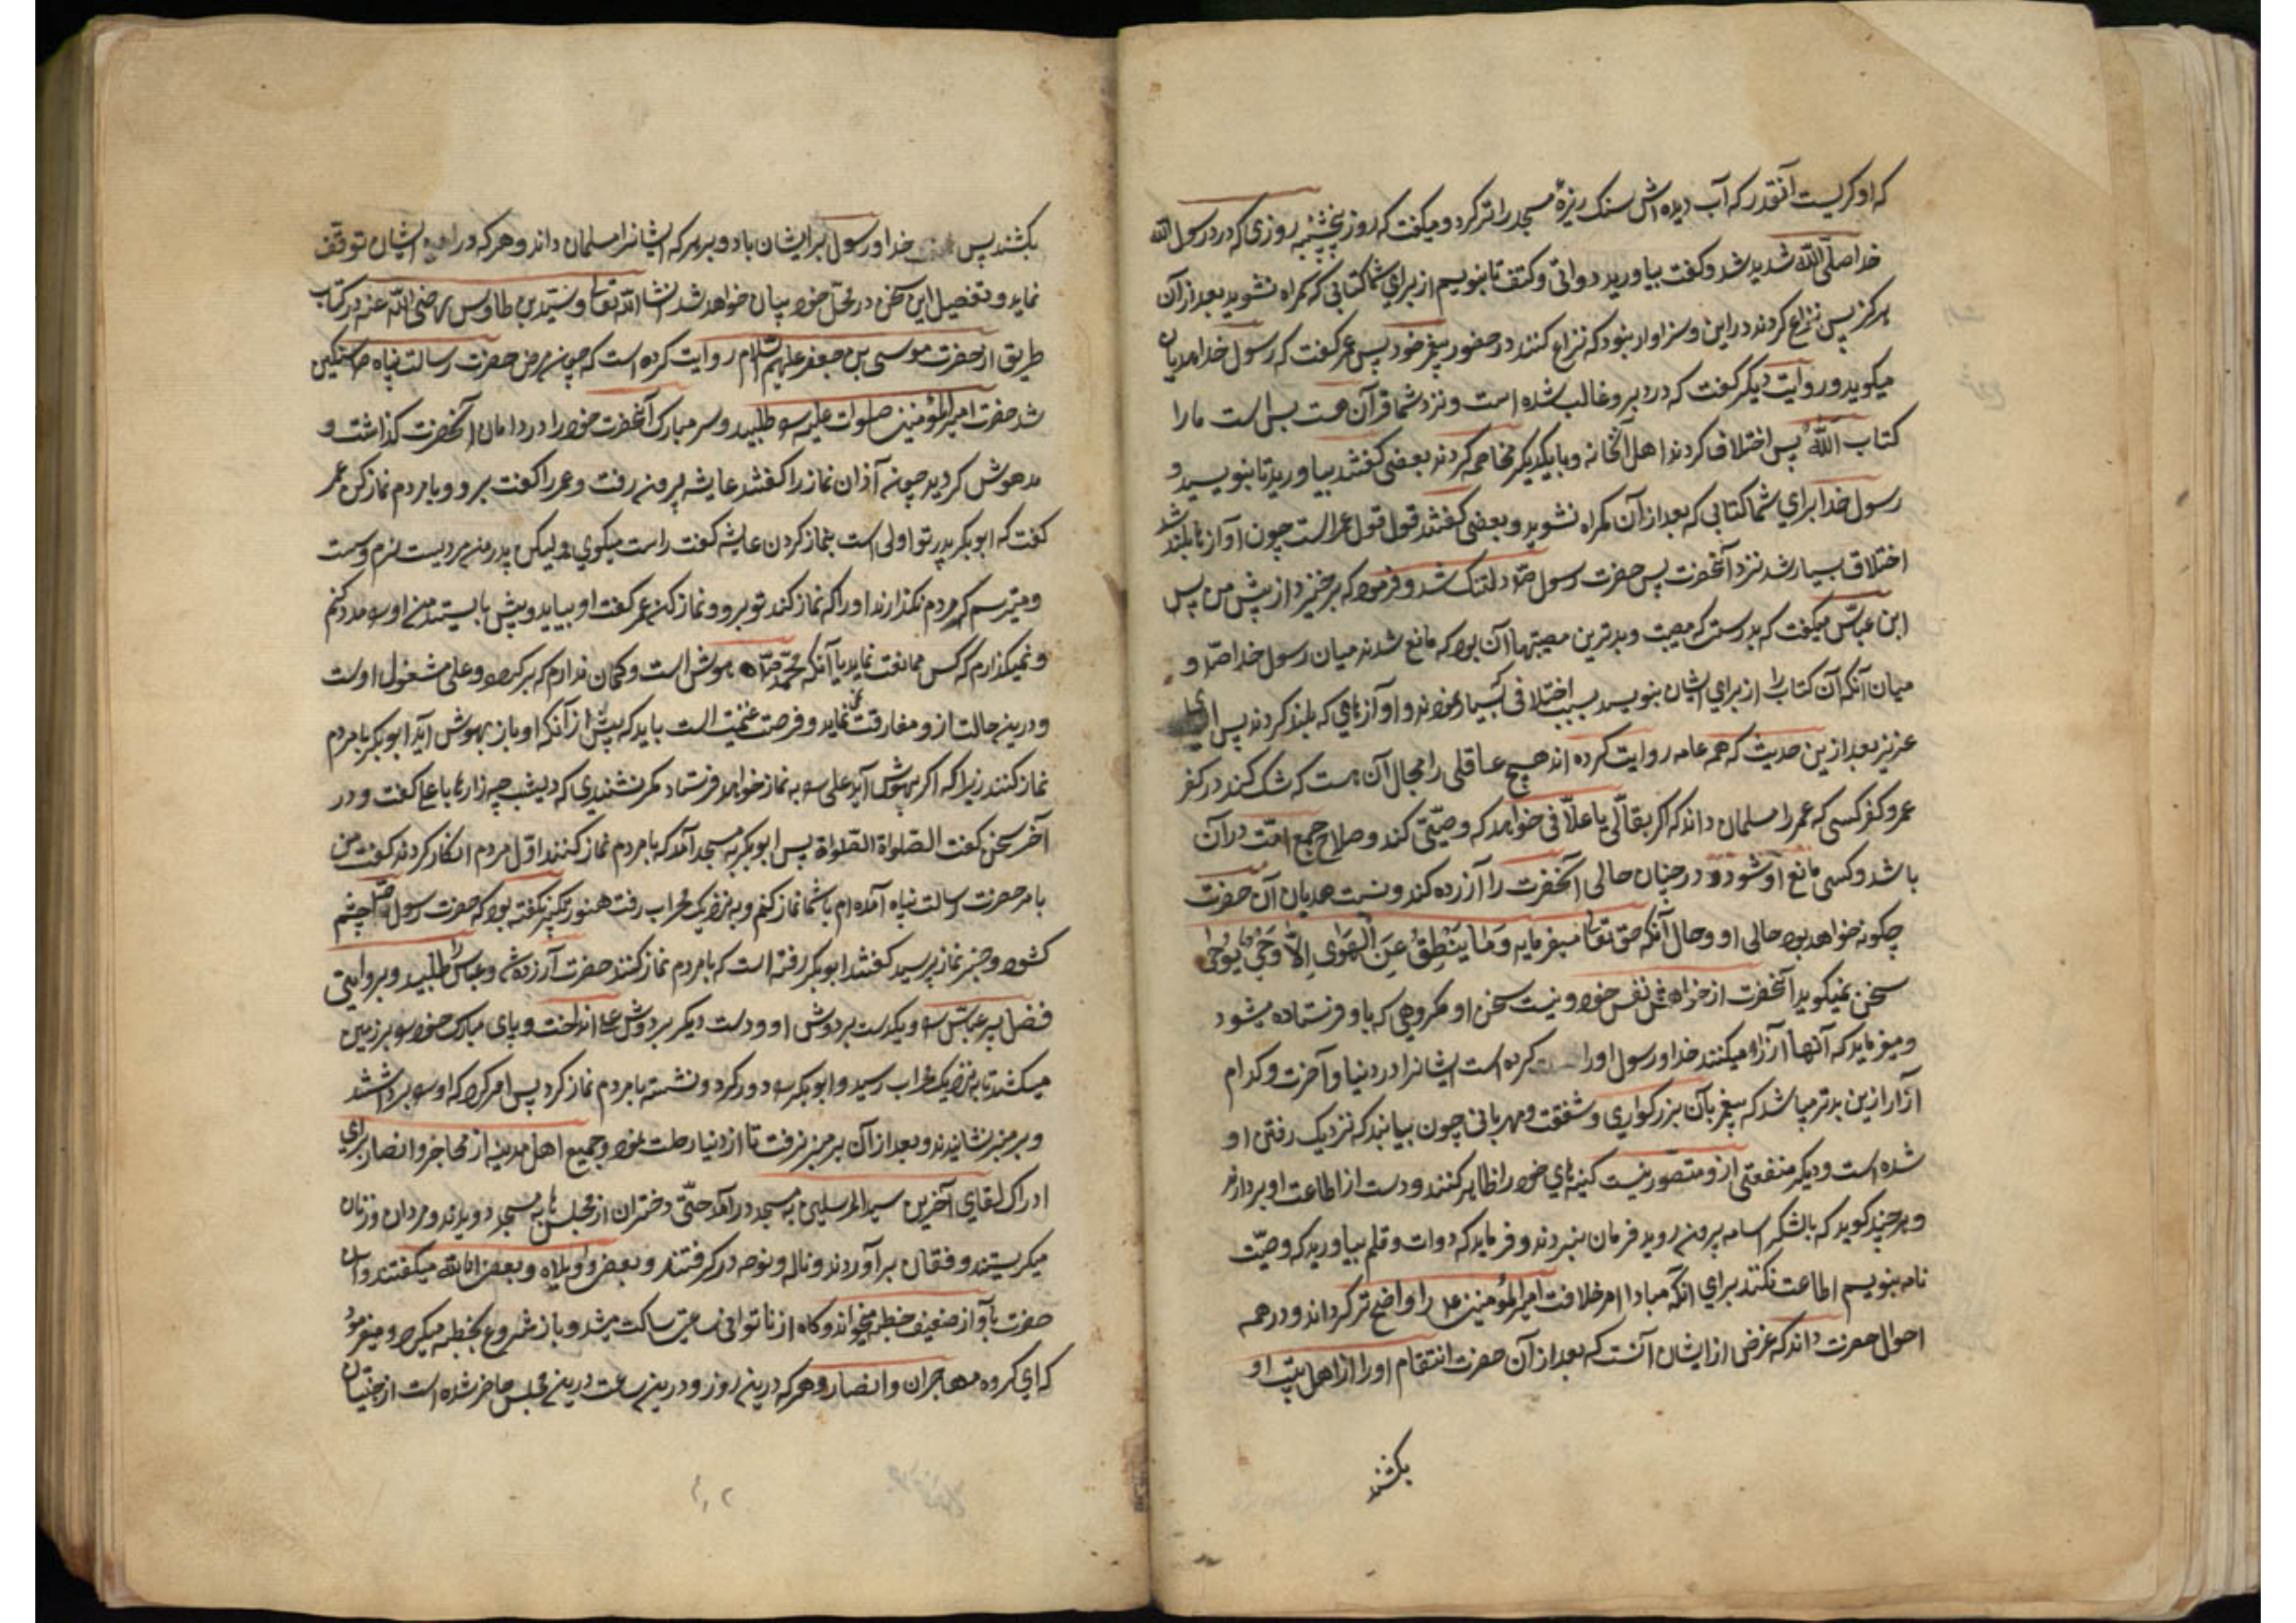 که او کریست آنقدر که آب دیده اش سنک ریزهٔ مسجد را تر کرد و میکفت که روز پنچشنبه روزی که درد رسول الله
خدا صلّی الله شدید شد و کفت بیاورید دواتی و کتف تا بنویسم از برای شما کتابی که کمراه نشوید بعد از آن
هرکز پس نزاع کردند در این و سزاوار نبود که نزاع کنند در حضور پیغمبر خود پس عمر کفت که رسول خدا هذیان
میکوید و روایت دیکر کفت که درد بر و غالب شده است و نزد شما قرآن هست بس است ما را
کتاب الله پس اختلاف کردند اهل آنخانه و با یکدیکر مخاصمه کردند بعضی کفتند بیاورید تا بنویسد و
رسول خدا برای شما کتابی که بعد از آن کمراه نشوید و بعضی کفتند قول قول عمر است چون آواز ها بلند شد
اختلاف بسیار شد نزد آنحضرت پس حضرت رسول صلّ دلتنک شد و فرمود که برخیزید از پیش من پس
ابن عبّاس میکفت که بدرستکه مصیبت و بدترین مصیبتها آن بود که مانع شدند میان رسول خدا صلّ و
میان آنکه آن کتاب را از برای ایشان بنویسد بسبب اختلافی که بسیار نمودند و آواز هایی که بلند کردند پس ای
عزیز بعد از ین حدیث که همه عامه روایت کرده اند هیچ عاقلی را مجال آن هست که شک کند در کفر
عمر و کفر کسی که عمر را مسلمان داند که اکر بقّالی یا علّافی خواهد که وصیّتی کند و صلاح جمیع امّت در آن
باشد و کسی مانع او شود و در چنان حالی آنحضرت را آزرده کند و نسبت هذیان بآن حضرت
چکونه خواهد بود حالی او و حال آنکه حق تعالی میفرماید وَمَا یَنْطِقُ عَنِ الْهَوَای اِلاّ وَحْیٌ یُوحٰی
سخن نمیکوید آنحضرت از خواهش نفس خود و نیست سخن او مکر وحیی که باو فرستاده میشود
و میفرماید که آنها آزار میکنند خدا و رسول او را کرده است ایشانرا در دنیا و آخرت و کدام
آزار ازین بدتر میباشد که پیغمبر بآن بزرکواری و شفقت و مهربانی چون بیابند که نزدیک رفتن او
شده است و دیکر منفعتی ازو متصور نیست کینه های خود را ظاهر کنند و دست از اطاعت او بردارند
و هر چند کوید که با لشکر اسامه بیرون روید فرمان نبردند و فرماید که دوات و قلم بیاورید که وصیّت
نامه بنویسم اطاعت نکنند برای آنکه مبادا امر خلافت امیر المؤمنین را واضح تر کرداند و در همه
احوال حضرت داند که غرض از ایشان آنست که بعد از آن حضرت انتقام او را از اهل بیت او
بکشند
بکشند پس خدا و رسول بر ایشان باد و بر هر که ایشانرا مسلمان داند و هر که در ایشان توقف
نماید و تفصیل این سخن در محل خود بیان خواهد شد انشا الله تعالی و سیّد بن طاوس رضی الله عنه در کتاب
طریق از حضرت موسی بن جعفر علیهم السلام روایت کرده است که چون مرض حضرت رسالت پناه صلّ سنکین
شد حضرت امیر المؤمنین صلوات علیه را طلبید و سر مبارک آنحضرت خود را در دامان آنحضرت کذاشت و
مدهوش کردید چون آذان نماز را کفتند عایشه بیرون رفت و عمر را کفت برو و با مردم نماز کن عمر
کفت که ابوبکر پدر تو اولی است بنماز کردن عایشه کفت راست میکوی ولیکن پدر من مردیست نرم و سست
و میترسم که مردم نکذارند او را که نماز کند تو برو و نماز کن عمر کفت او بیاید و پیش بایستد من او را مدد کنم
و نمیکذارم که کس ممانعت نماید با آنکه محمّد صلّ بیهوش است و کمان ندارم که برکردد و علی مشغول اوست
و درین حالت ازو مفارقت نمی نماید و فرصت غنیمت است باید که پیش از آنکه او باز بهوش آید ابوبکر با مردم
نماز کند زیرا که اکر بهوش آید علی را به نماز خواهد فرستاد مکر نشنیدی که دیشب چه رازها با علی کفت و در
آخر سخن کفت الصلواة الصلواة پس ابوبکر به مسجد آمد که با مردم نماز کند اوّل مردم انکار کردند کفت من
بامر حضرت رسالت پناه آمده ام با شما نماز کنم و به نزدیک محراب رفت هنوز تکبیر نکفته بود که حضرت رسول صلّ چشم
کشود و خبر نماز پرسید کفتند ابوبکر رفته است که با مردم نماز کند حضرت آزرده شد و عباس را طلبید و بروایتی
فضل پسر عبّاس را و یکدست بر دوش او و دست دیکر بر دوش علی انداخت و پای مبارک خود را بر زمین
میکشید تا به نزدیک محراب رسید و ابوبکر را دور کرد و نشسته با مردم نماز کرد پس امر کرد که او را برداشتند
و بر منبر نشانیدند و بعد از آن بر منبر نرفت تا از دنیا رحلت نمود و جمیع اهل مدینه از مهاجر و انصار برای
ادراک لقای آخرین سید المرسلین به مسجد در آمد حتّی دختران از مجلس ها به مسجد دویدند و مردان و زنان
میکریستند و فقان بر آوردند و ناله و نوحه در کرفتند و بعض واویلاه و بعض انا لله میکفتند و آن
حضرت با آواز ضعیف خطبه میخواند و کاه از ناتوانی ساعتی ساکت میشد و باز شروع بخطبه میکرد و میفرمود
که ای کروه مهاجران و انصار و هر که درین روز و درین ساعت درین مجلس حاضر شده است از جنیان